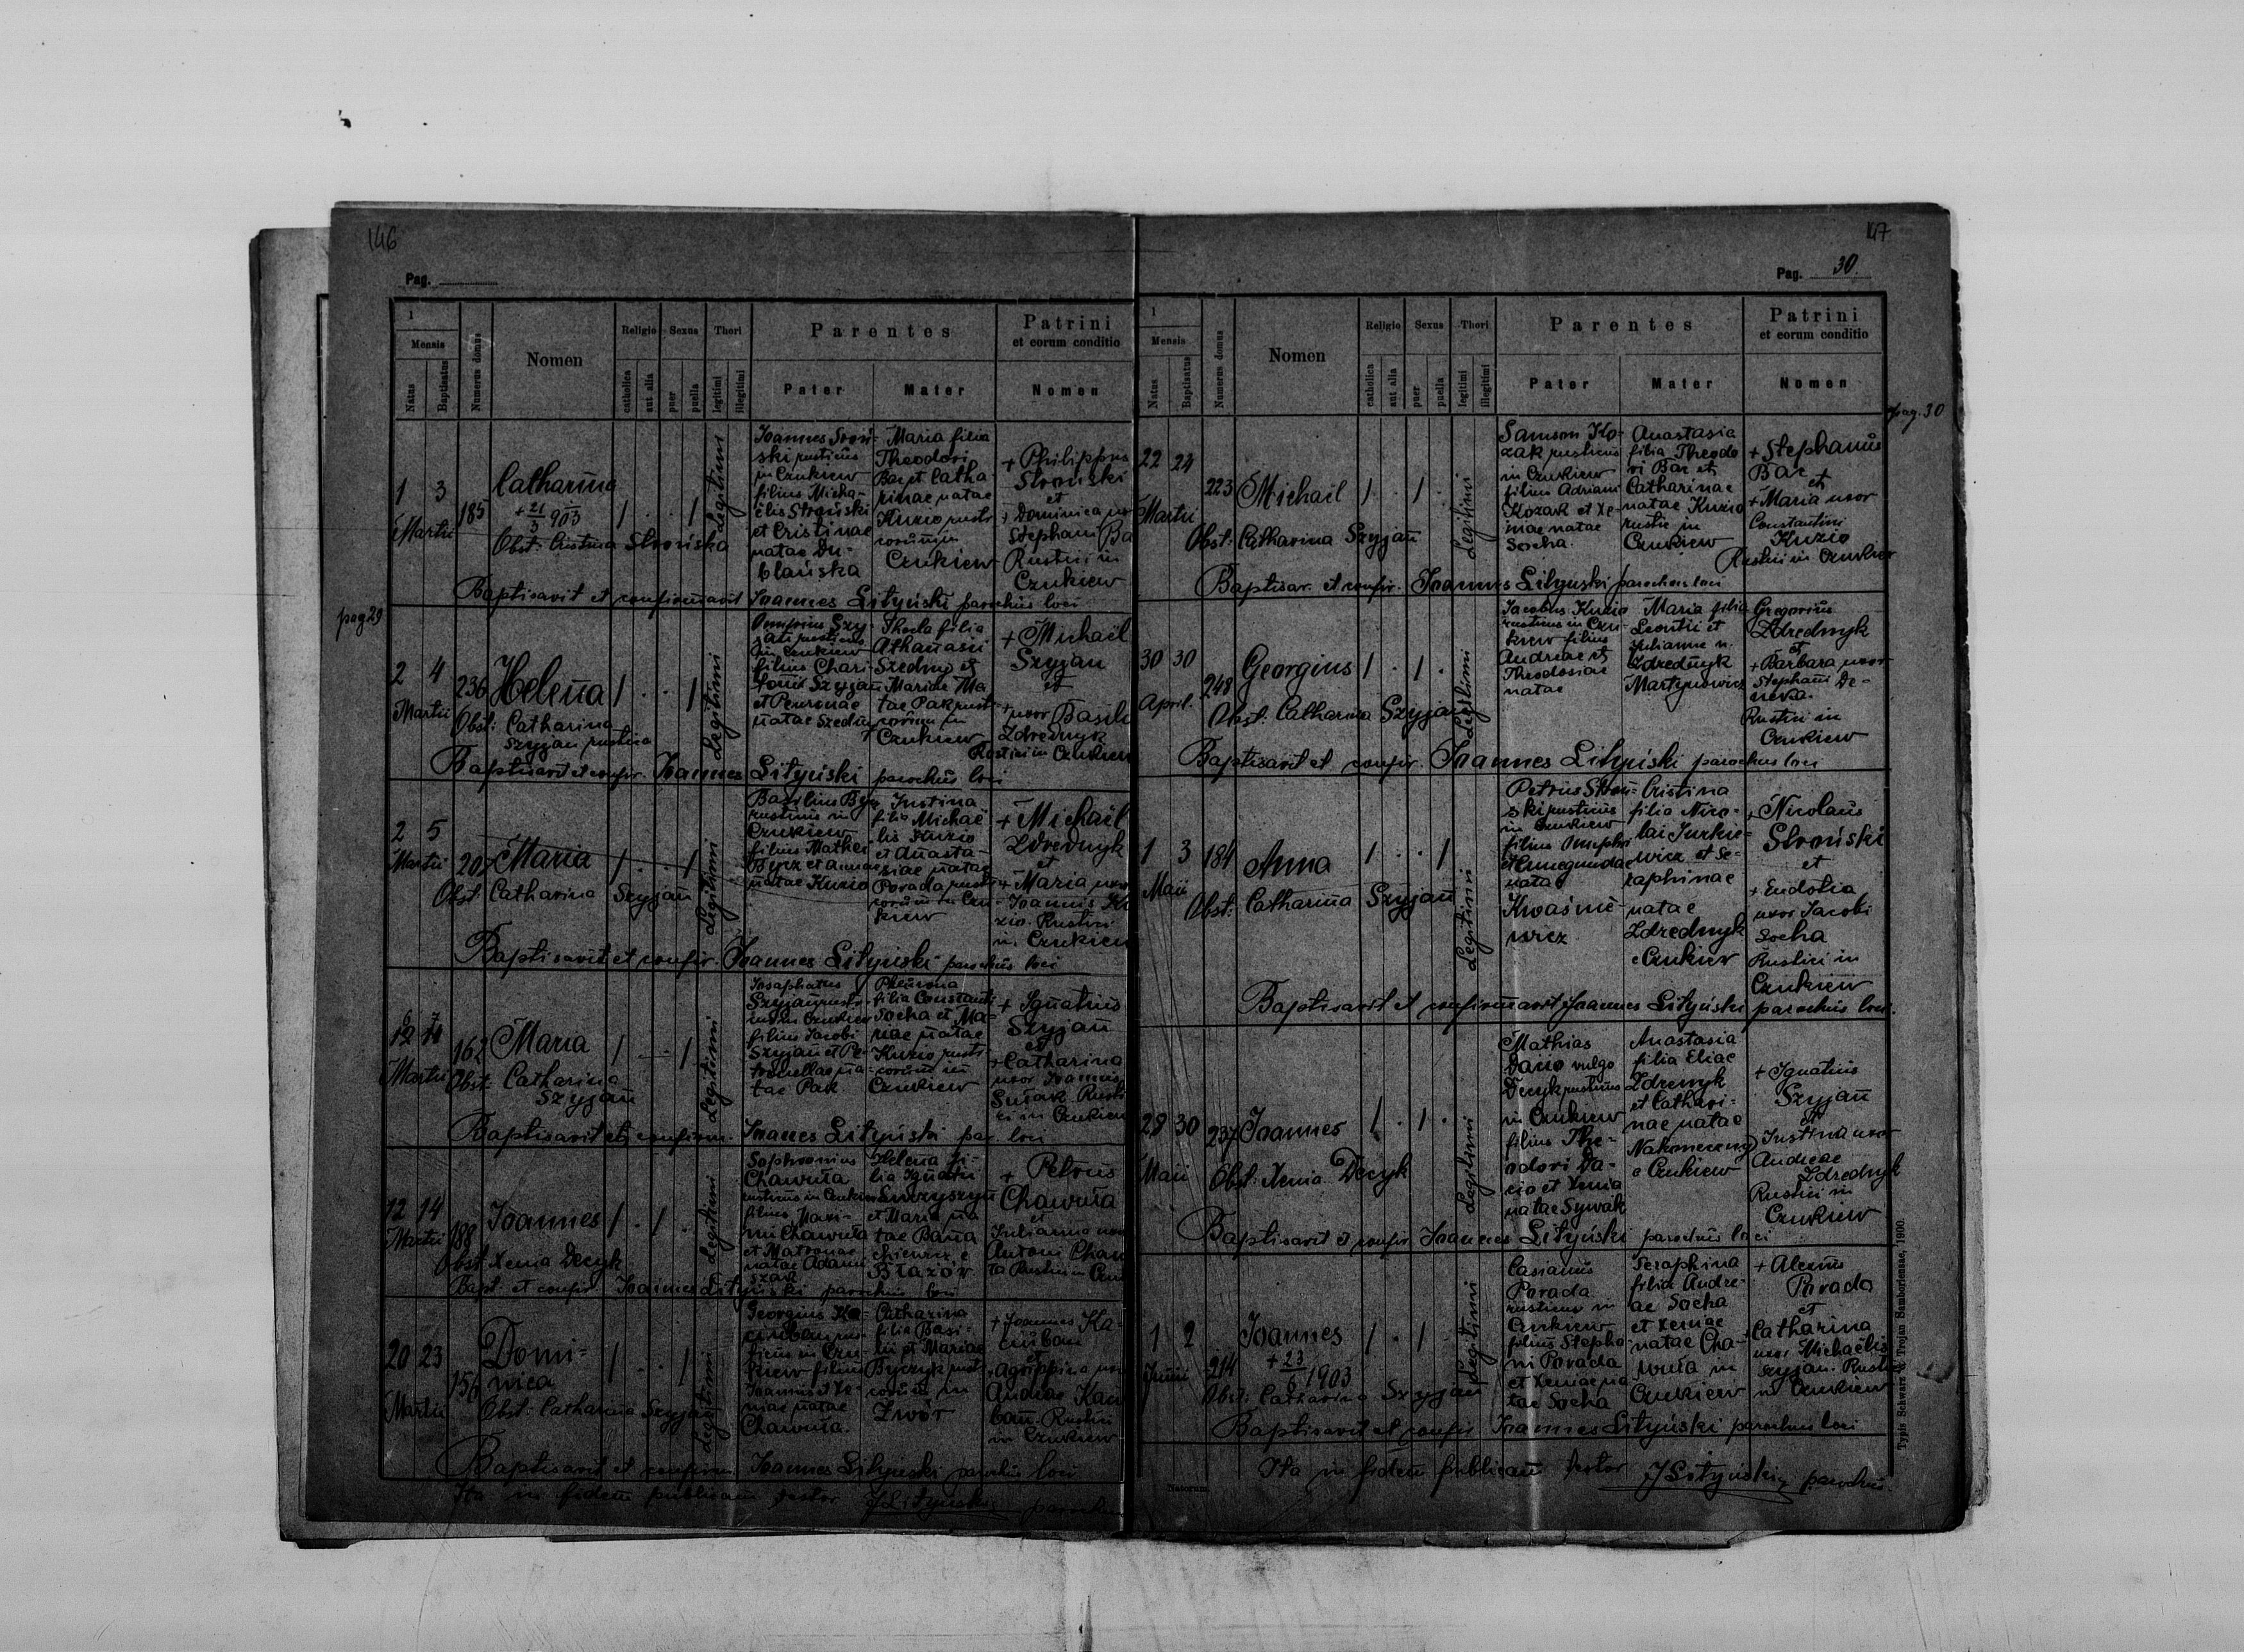 146
Pag.
1
Mensis
Natus
Baptisatus
Numerus domus
Nomen
Religio
catholica
aut alia
Sexus
puer
puella
Thori
legitimi
illegitimi
Parentes
Pater
Mater
Patrini
et eorum conditio
Nomen
1 3
Martii
185
Catharina
+ 21/3 903
Obst. Cristina Stroniska
Legitimi
Joannes Stroń-
ski rusticus
in Czukiew
filius Micha-
elis Stroński
et Cristinae
natae Du-
blańska
Maria filia
Theodori
Bar et Catha
rinae natae
Kuzio rusti
corum in
Czukiew
+ Philippus
Stronski
et
+ Dominica
Stephani Ba
Rustici in
Czukiew
Baptisavit et confirmavit Joannes Lityński parochus loci
pag 29
2 4
Martii
236
Helena
Obst. Catharina
Szyjan rustica
Legitimi
Onufrius Szy-
jan rusticus
in Czukiew
filius Chari-
tonis Szyjan
et Peuronae
natae
Thecla filia
Athanasii
et
Mariae
tae Pak rusti
corum in
Czukiew
+ Michaël
Szyjan
et
+ uxor Basili
Zdrednyk
Rustici in Czukiew
Baptisavit et confir. Joannes Lityński parochus loci
2 5
Martii
207
Maria
Obst. Catharina Szyjan
Legitimi
Basilius
rusticus in
Czukiew
filius
et Annae
natae Kuzio
Justina
filia Michaë
lis Kuzio
et Anasta-
siae natae
Porada rusti
corum in Czu-
kiew
+ Michaël
Zdrednyk
et
+ Maria uxor
Joannis Ku
zio. Rustici
in Czukiew
Baptisavit et confir. Joannes Lityński parochus loci
6 7
12 14
Martii
162
Maria
Obst. Catharina
Szyjan
Legitimi
Josaphatus
Szyjan rusti-
cus in Czukiew
filius Jacobi
Szyjan et Pe-
tronellae na-
tae Pak
filia Constanti
Socha et Ma-
riae natae
Kuzio rusti-
corum in
Czukiew
+ Ignatius
Szyjan
et
+ Catharina
uxor Joannis
Rusti
ci in Czukiew
Baptisavit et confirm. Joannes Lityński par. loci
12 14
Martii
188
Joannes
Obst. Xenia Decyk
legitimi
Sophronius
Chawuła
rusticus in Czukiew
filius Maxi-
mi Chawuła
et Matronae
natae Adam
szak
Helena fi-
lia Ignatii
et Maria na
tae Bana
chiewicz e
Błażów
+ Petrus
Chawuła
et
Julianna uxor
Antoni Chawu
ła Rustici in Czu
Bapt. et confir. Joannes Lityński parochus loci
20 23
Martii
156
Domi-
nica
Obst. Catharina Szyjan
Legitimi
Georgius Ka-
czuban rus-
ticus in Czu-
kiew filius
Joannis et Xe-
niae natae
Chawuła.
Catharina
filia Basi-
lii et Mariae
Byczyk rusti
corum in
Zwór
+ Joannes Ka-
czuban
et
+ Agrippina uxor
Andreae Kacz
ban. Rustici
in Czukiew
Baptisavit et confirm. Joannes Lityński parochus loci
Ita in fidem publicam testor JLityński parochus
147
Pag. 30.
1
Mensis
Natus
Baptisatus
Numerus domus
Nomen
Religio
catholica
aut alia
Sexus
puer
puella
Thori
legitimi
illegitimi
Parentes
Pater
Mater
Patrini
et eorum conditio
Nomen
pag. 30
22 24
Martii
223
Michail
Obst. Catharina Szyjan
Legitimi
Samson Ko-
zak rusticus
in Czukiew
filius Adriani
Kozak et Xe-
niae natae
Socha.
Anastasia
filia Theodo
ri Bar et
Catharinae
natae Kuzio
rustic in
Czukiew
+ Stephanus
Bar +
et
+ Maria uxor
Constantini
Kuzio
Rustici in Czukiew
Baptisav. et confir. Joannes Lityński parochus loci
30 30
April.
248
Georgius
Obst. Catharina Szyjan
Legitimi
Jacobus Kuzio
rusticus in Czu-
kiew filius
Andreae et
Theodosiae
natae
Maria filia
Leontii et
Julianne n.
Zdrednyk
Martynowicz
Gregorius
Zdrednyk
et
+ Barbara uxor
Stephani De-
neka.
Rustici in
Czukiew
Baptisavit et confir. Joannes Lityński parochus loci
1 3
Maii
184
Anna
Obst. Catharina Szyjan
Legitimi
Petrus Stroń-
ski rusticus
in Czukiew
filius Onuphri
et Cunegundae
nata
Kwaśnie-
wicz
Cristina
filia Nico-
lai Jurkie-
wicz et Se-
raphinae
natae
Zdrednyk
e Czukiew
+ Nicolaus
Stroński
et
+ Eudokia
uxor Jacobi
Socha
Rustici in
Czukiew
Baptisavit et confirmavit Joannes Lityński parochus loci.
28 30
Maii
237
Joannes
Obst. Xenia Decyk
Legitimi
Mathias
Dacio vulgo
Decyk rusticus
in Czukiew
filius The-
odori Da-
cio et Xenia
natae Sywak
Anastasia
filia Eliae
Zdrednyk
et Cathari-
nae natae
e Czukiew
+ Ignatius
Szyjan
et
Justina uxor
Andreae
Zdrednyk
Rustici in
Czukiew
Baptisavit et confir Joannes Lityński parochus loci
1 2
Junii
214
Joannes
+ 23/6 1903
Obst. Catharina Szyjan
Legitimi
Casianus
Porada
rusticus in
Czukiew
filius Stepha
ni Porada
et Xeniae na
tae Socha
Seraphina
filia Andre-
ae Socha
et Xeniae
natae Cha-
wuła in
Czukiew
+ Alexius
Porada
et
+ Catharina
uxor Michaëlis
Szyjan. Rusti
in Czukiew
Baptisavit et confir Joannes Lityński parochus loci
Ita in fidem publicam testor JLityński parochus.
Natorum
Typis Schwarz & Trojan Samboriensae, 1900.